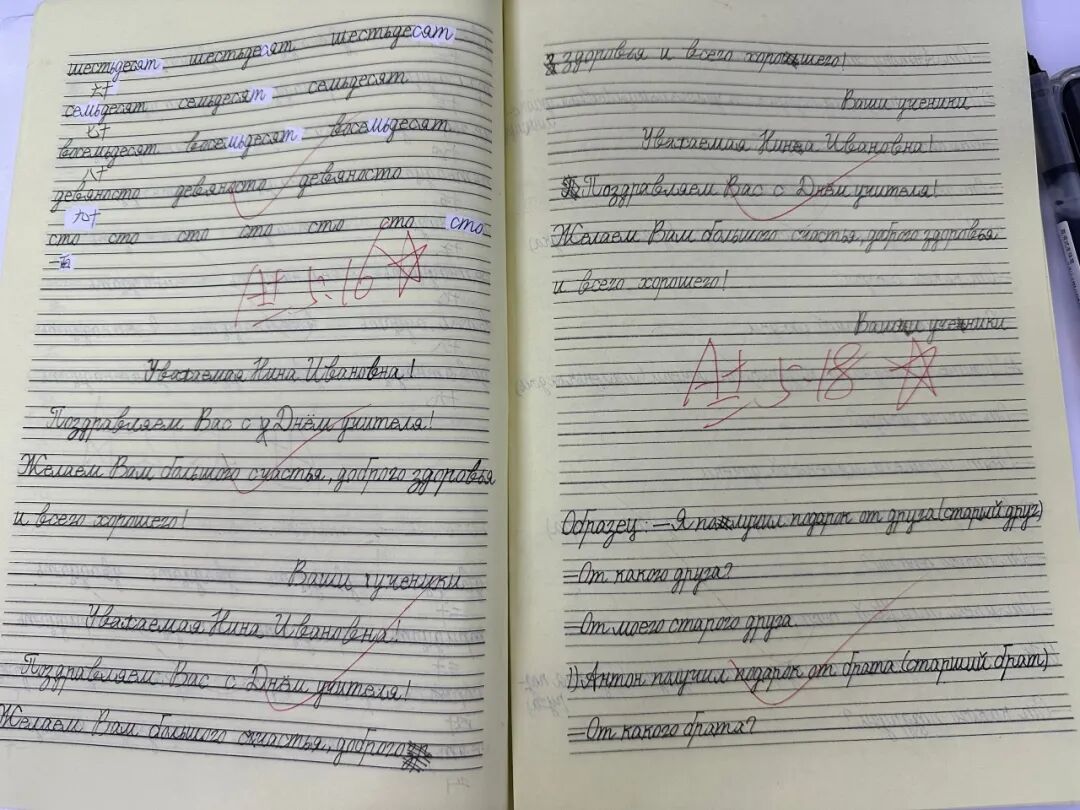 шестьдесят шестьдесят шестьдесят
六十
семьдесят семьдесят семьдесят
七十
восемьдесят восемьдесят восемьдесят
八十
девяносто девяносто девяносто
九十
сто сто сто сто сто сто сто
一百
A+ 5.16
Уважаемая Нина Ивановна!
Поздравляем Вас с Днём учителя!
Желаем Вам большого счастья, доброго здоровья
и всего хорошего!
Ваши ученики
Уважаемая Нина Ивановна!
Поздравляем Вас с Днём учителя!
Желаем Вам большого счастья, доброго
здоровья и всего хорошего!
Ваши ученики
Уважаемая Нина Ивановна!
Поздравляем Вас с Днём учителя!
Желаем Вам большого счастья, дорого здоровья
и всего хорошего!
Ваши ученики
A+ 5.18
Образец: —Я получил подарок от друга (старый друг)
—От какого друга?
—От моего старого друга
1) Антон получил подарок от брата (старший брат)
—От какого брата?